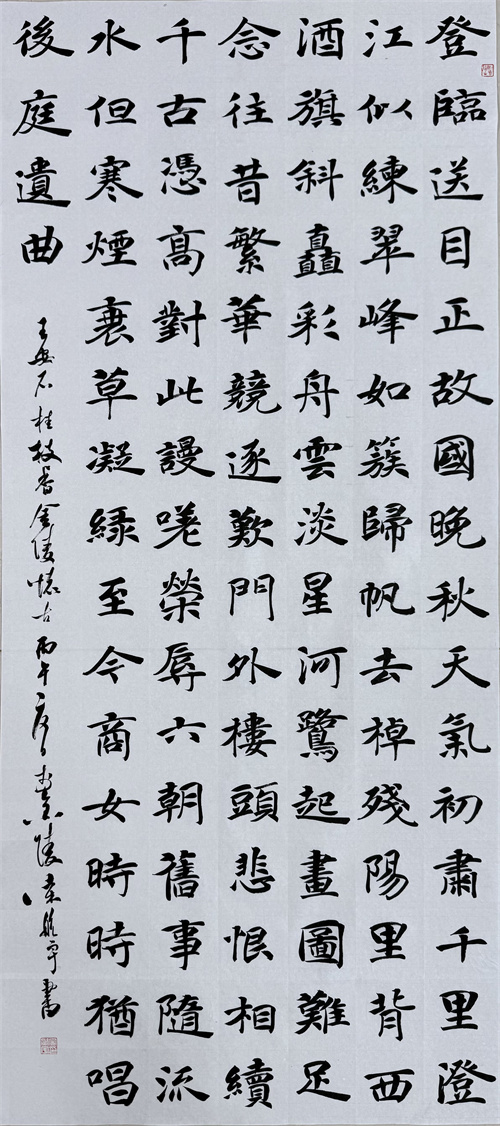 登臨送目正故國晚秋天氣初肅千里澄
江似練翠峰如簇歸帆去棹殘陽里背西
酒旗斜矗彩舟雲淡星河鷺起畫圖難足
念往昔繁華競逐歎門外樓頭悲恨相續
千古憑高對此謾嗟榮辱六朝舊事隨流
水但寒煙衰草凝綠至今商女時時猶唱
後庭遺曲
王安石桂枝香金陵懷古丙午書